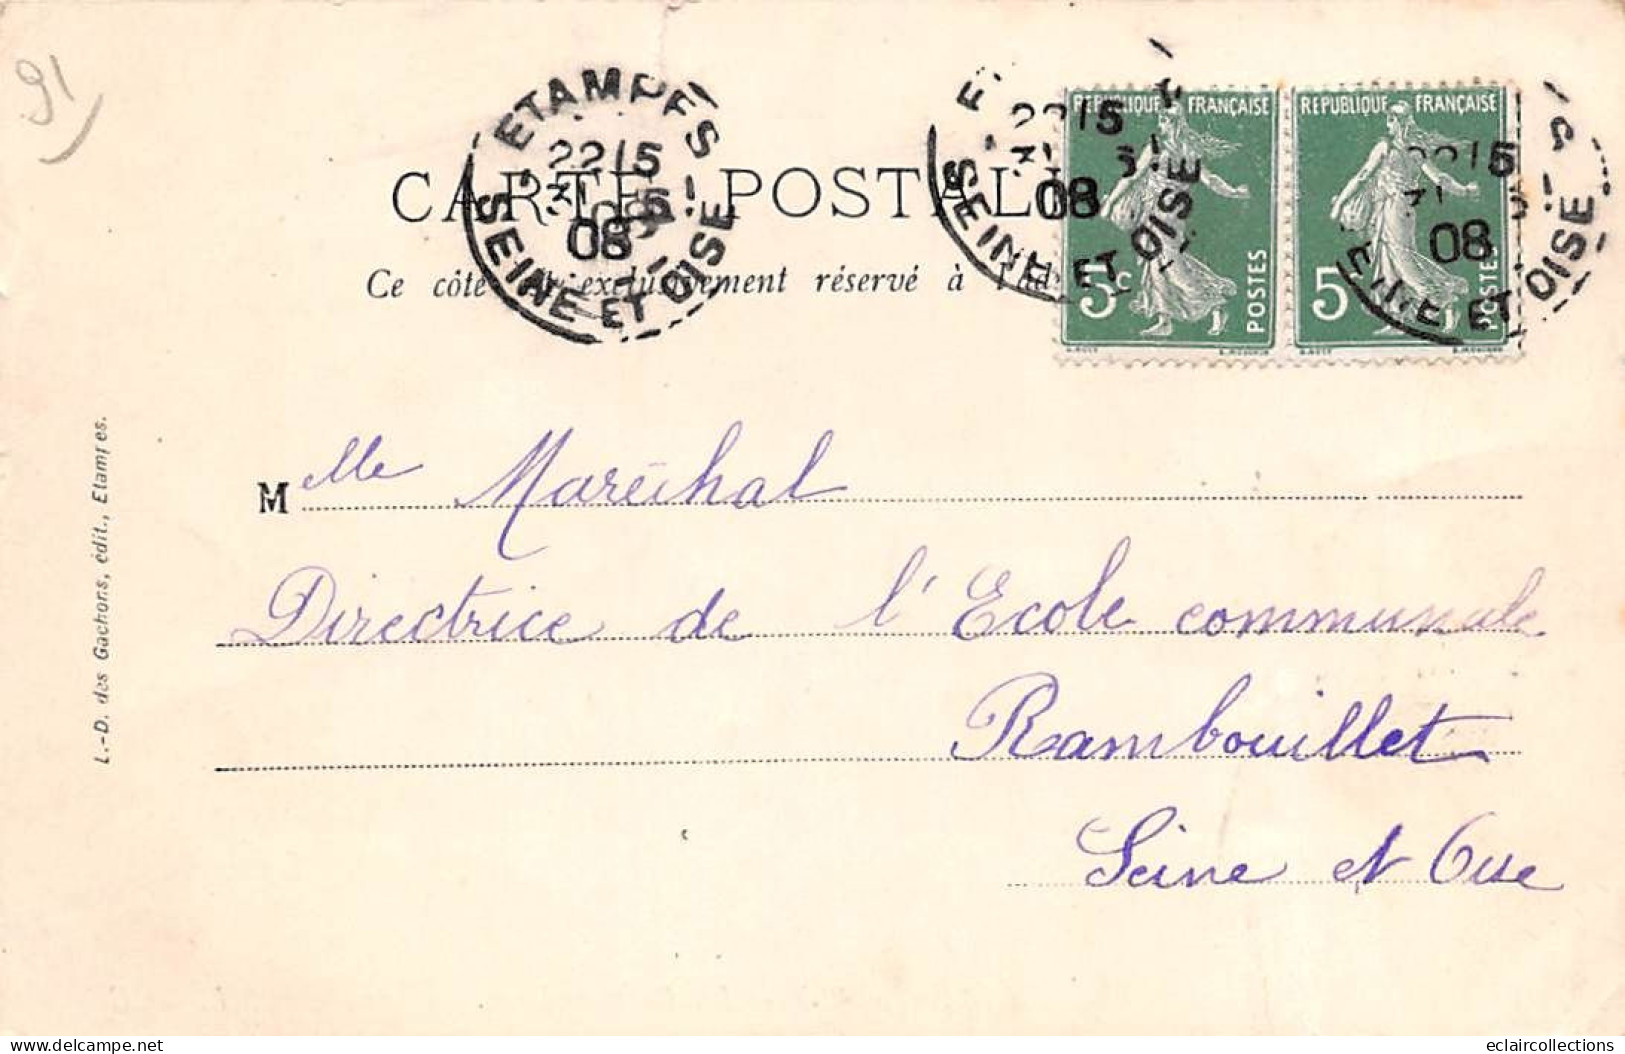 91
ETAMPES
22 15
31 5
08
SEINE ET OISE
CARTE POSTALE
Ce côté est exclusivement réservé à l'adresse
22 15
31 5
08
SEINE ET OISE
REPUBLIQUE FRANÇAISE
5c
POSTES
REPUBLIQUE FRANÇAISE
5
POSTES
22 15
31
08
SEINE ET OISE
Melle Maréchal
Directrice de l'Ecole communale
Rambouillet
Seine et Oise
L.-D. des Gachons, édit., Etampes.
delcampe.net
eclaircollections